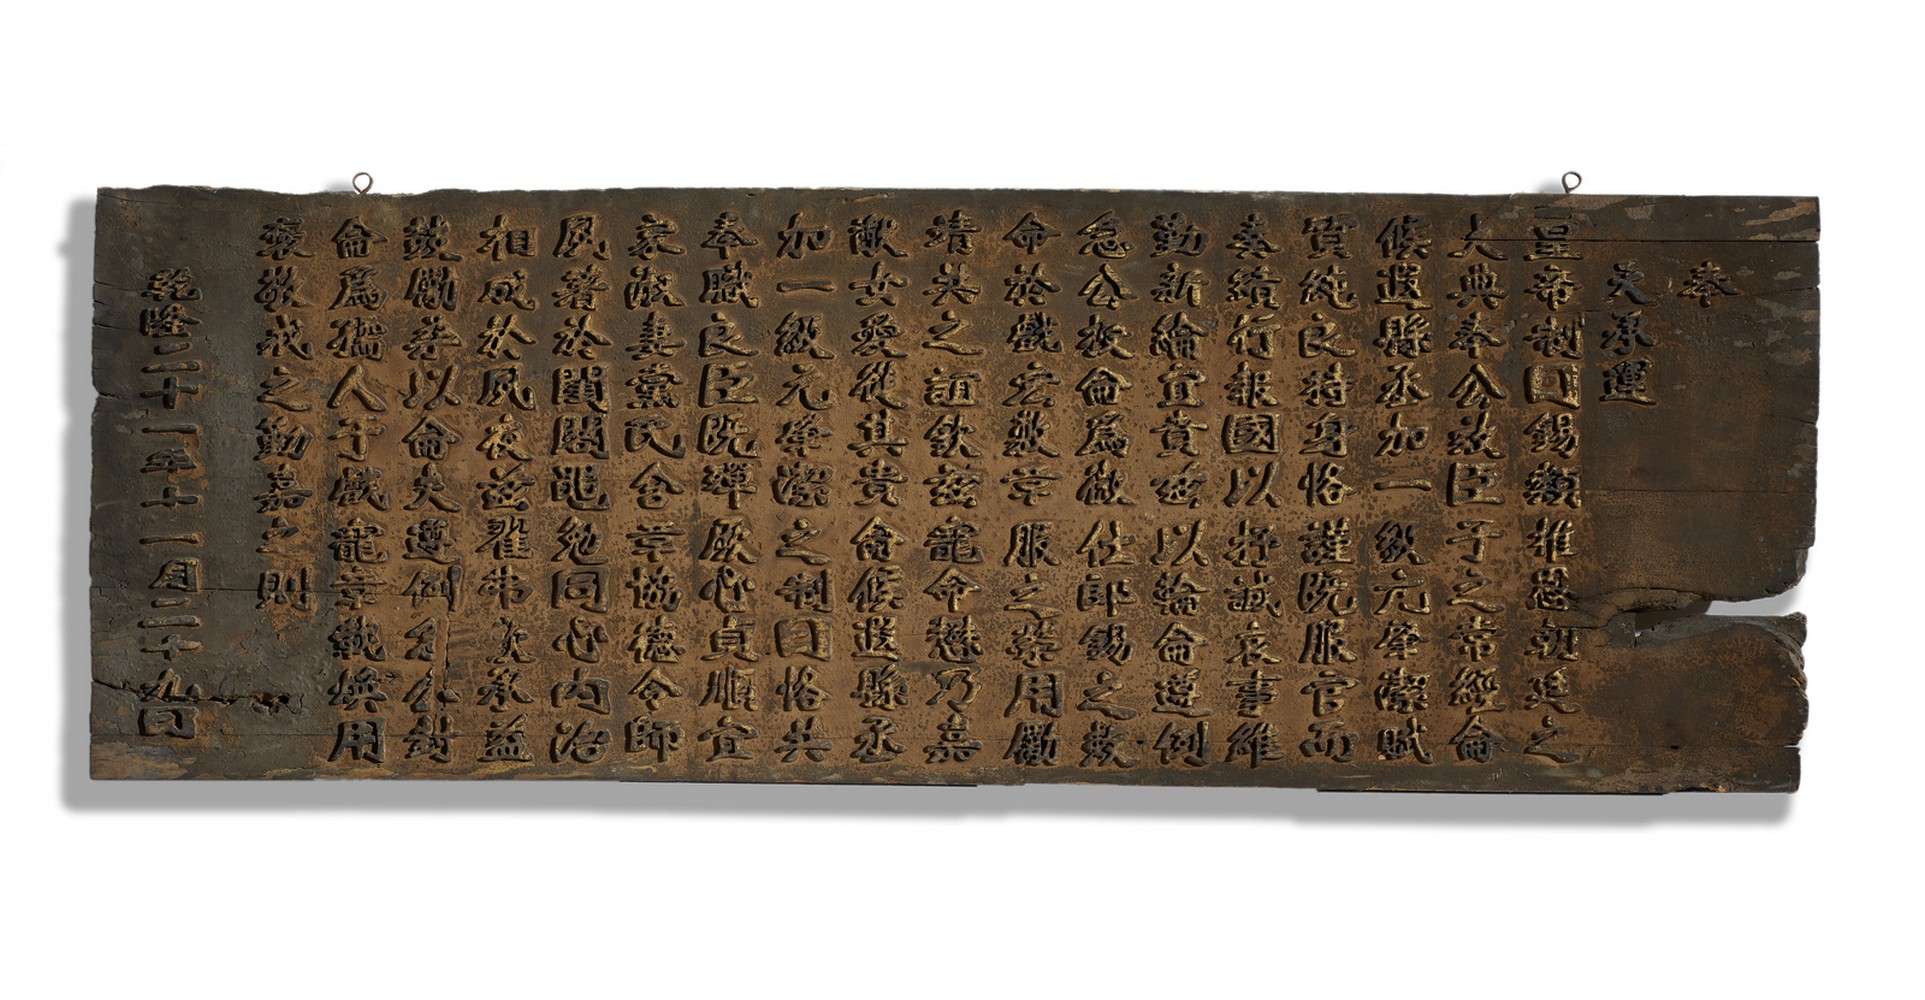 奉
天承運
皇帝制曰錫類推恩朝廷之
大典奉公效臣子之常經爾
候選縣丞加一級元肇潔賦
質純良持身恪謹既服官而
奏績行報國以抒誠哀事維
勤新綸宜賁茲以綸爾遵例
急公授爾爲徵仕郎錫之敕
命於戲宏敷章服之榮用勵
靖共之誼欽茲寵命懋乃嘉
猷女愛從其貴爾候選縣丞
加一級元肇潔之制曰恪共
奉職良臣既殫厥心貞順宜
家淑妻黨氏含章協德令師
夙著於閨閫黽勉同心內治
相成於夙夜茲翟茀承益
勵恭以爾夫遵例急公封
爾爲孺人于戲寵章載煥用
褒敬戒之勤嘉之則
乾隆二十一年十一月二十九日